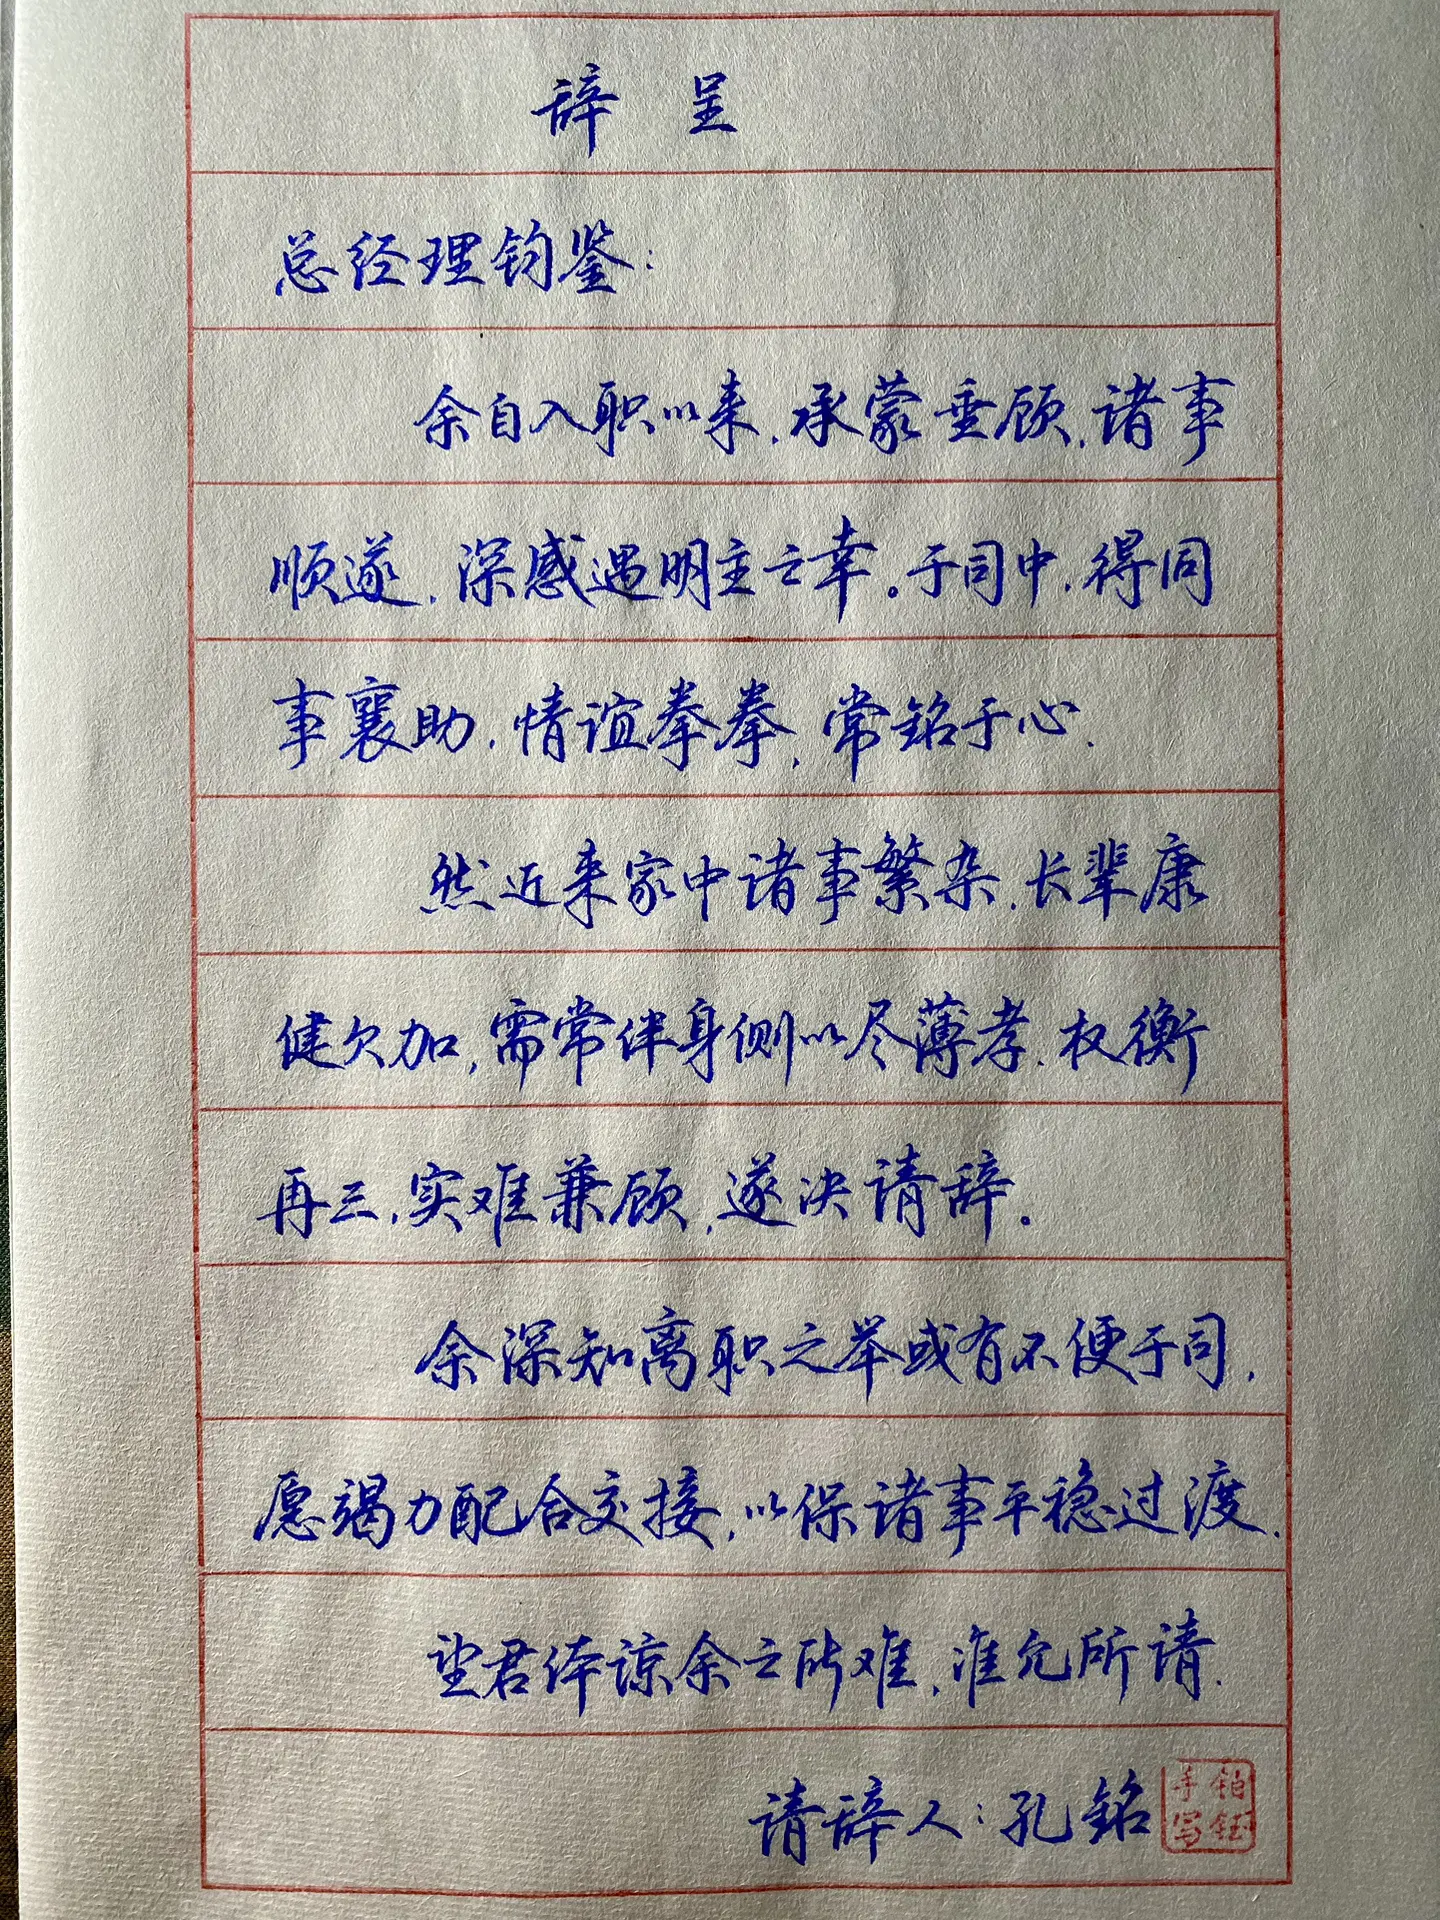 辞 呈
总经理钧鉴:
余自入职以来,承蒙垂顾,诸事
顺遂,深感遇明主之幸。于司中,得同
事襄助,情谊拳拳,常铭于心.
然近来家中诸事繁杂,长辈康
健欠加,需常伴身侧以尽薄孝.权衡
再三,实难兼顾,遂决请辞。
余深知离职之举或有不便于司,
愿竭力配合交接,以保诸事平稳过渡.
望君体谅余之所难,准允所请.
请辞人:孔铭
铂钰
手写